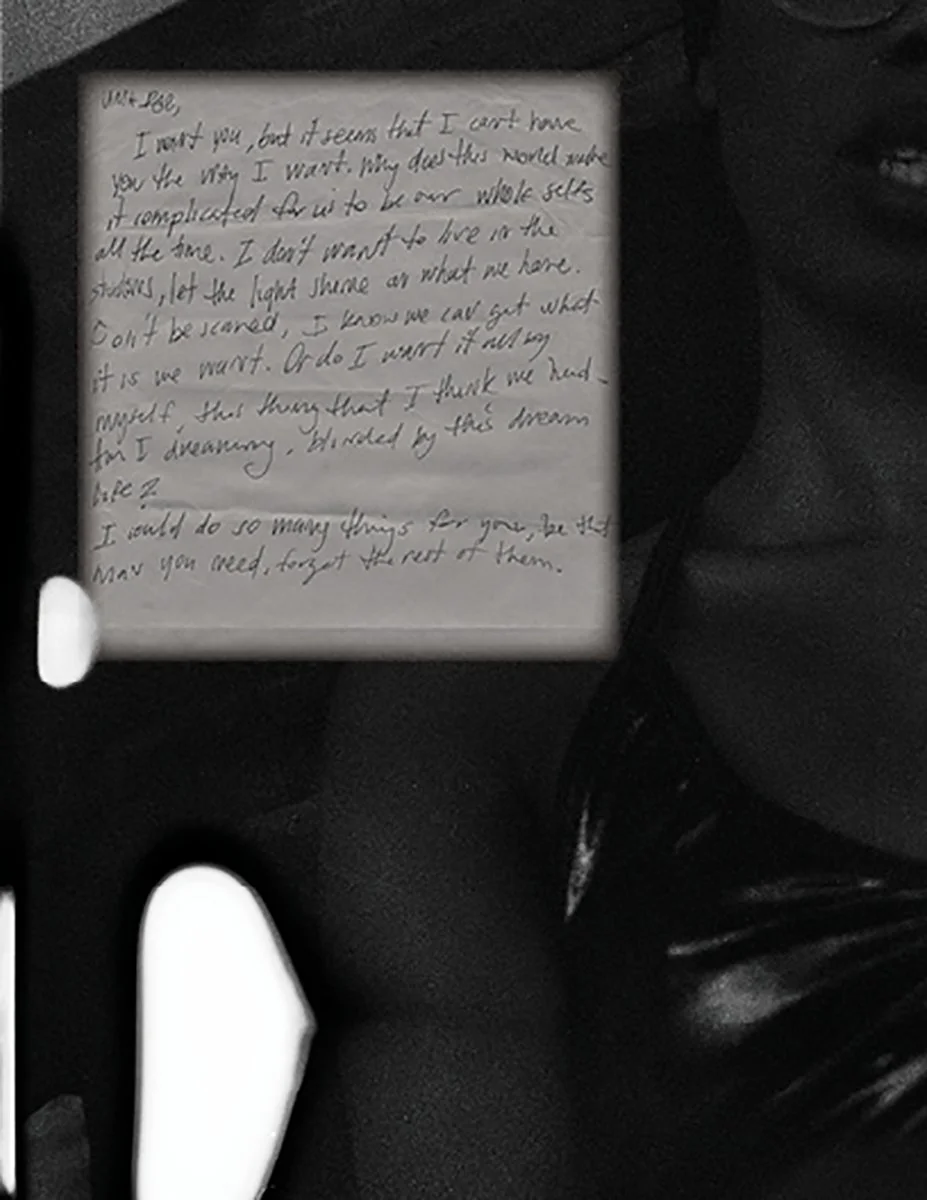 I want you, but it seems that I can't have
you the way I want. Why does this world make
it complicated for us to be our whole selfs
all the time. I don't want to live in the
shadows, let the light shine on what we have.
Don't be scared, I know we can get what
it is we want. Or do I want it all by
myself, this thing that I think we had.
Am I dreaming, blinded by this dream
life?
I would do so many things for you, be that
man you need, forget the rest of them.